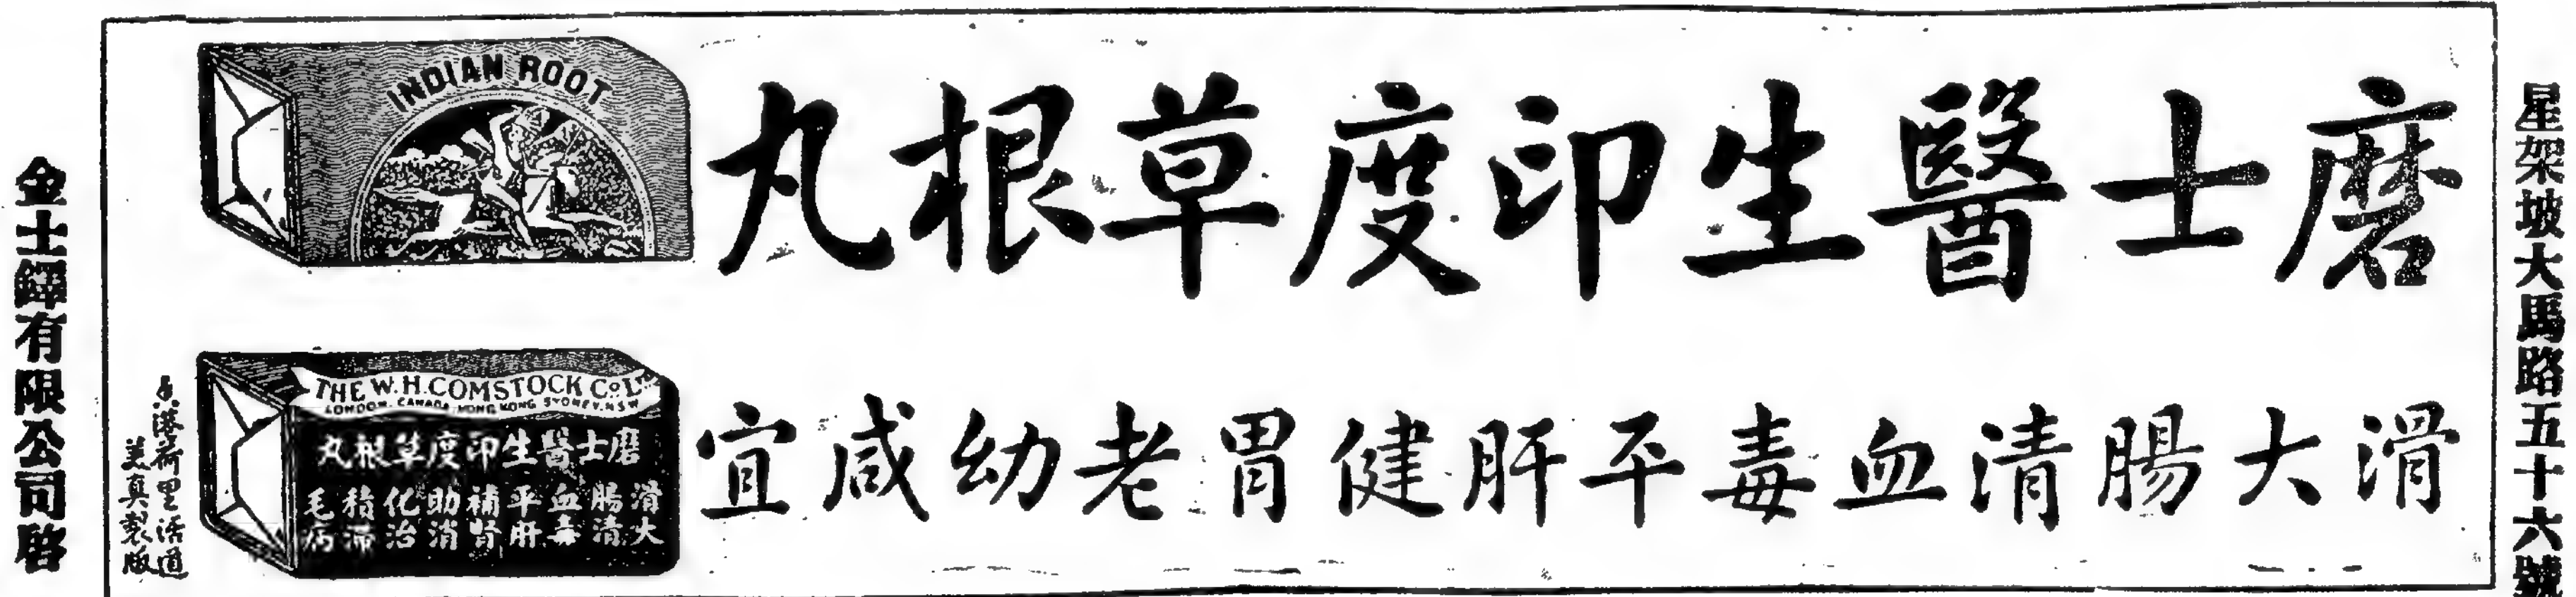 星架坡大馬路五十六號
磨士醫生印度草根丸
滑大腸清血毒平肝健胃老幼咸宜
INDIAN ROOT
THE W.H.COMSTOCK CO. LTD
LONDON. CANADA. HONG KONG SYDNEY. N.S.W
磨士醫生印度草根丸
滑大
腸清
血毒
平肝
補腎
助消
化治
積滯
毛病
香港荷里活道
美真製版
金土鐸有限公司啓